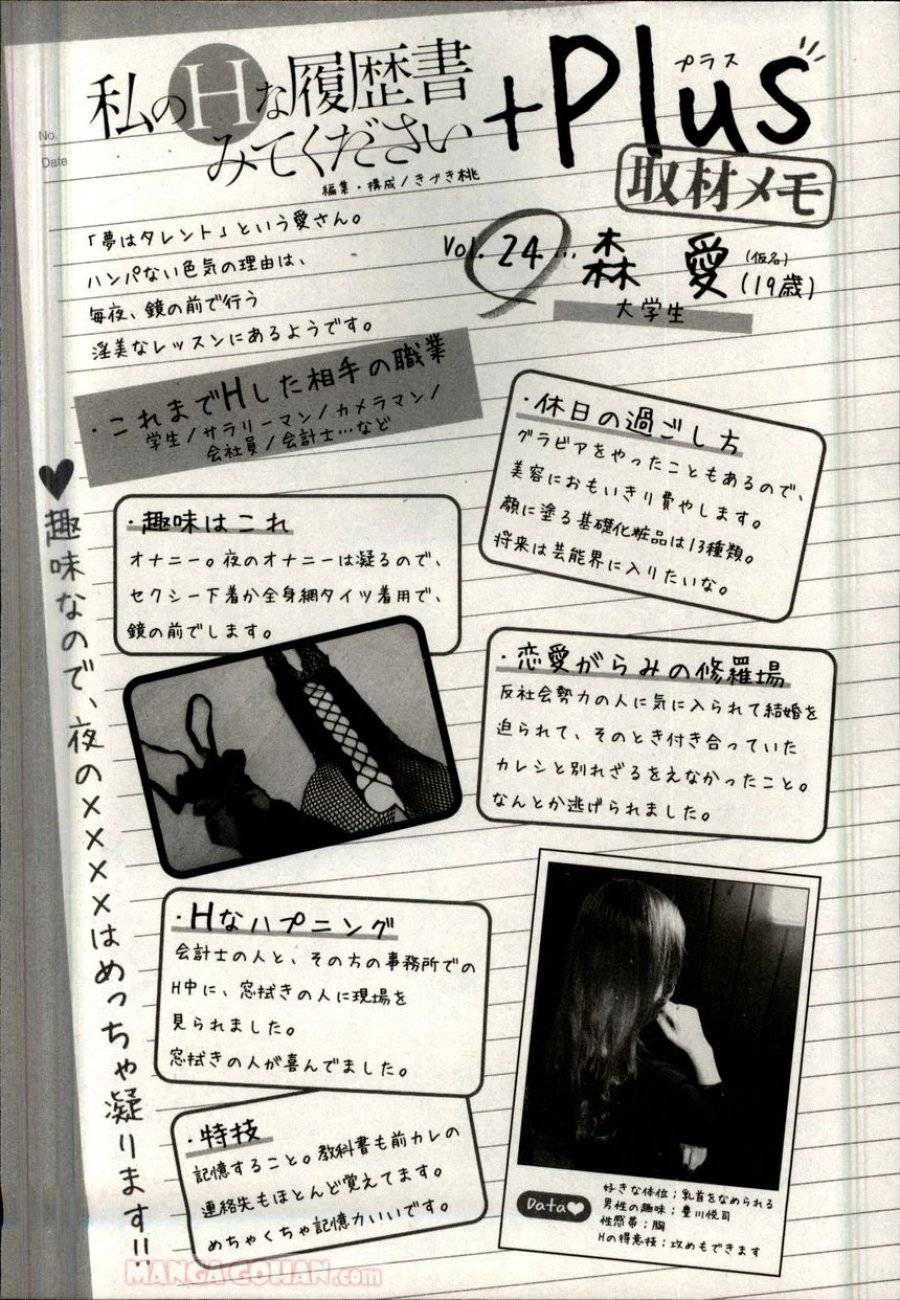 No.
Date
私のHな履歴書
みてください
+Plus
プラス
編集・構成/きづき桃
取材メモ
「夢はタレント」という愛さん。
ハンパない色気の理由は、
毎夜、鏡の前で行う
淫美なレッスンにあるようです。
Vol. 24... 森 愛 (仮名) (19歳)
大学生
・これまでHした相手の職業
学生/サラリーマン/カメラマン/
会社員/会計士…など
・休日の過ごし方
グラビアをやったこともあるので、
美容におもいきり費やします。
顔に塗る基礎化粧品は13種類。
将来は芸能界に入りたいな。
♥趣味なので、夜の××××はめっちゃ凝ります!!
・趣味はこれ
オナニー。夜のオナニーは凝るので、
セクシー下着か全身網タイツ着用で、
鏡の前でします。
・恋愛がらみの修羅場
反社会勢力の人に気に入られて結婚を
迫られて、そのとき付き合っていた
カレシと別れざるをえなかったこと。
なんとか逃げられました。
・Hなハプニング
会計士の人と、その方の事務所での
H中に、窓拭きの人に現場を
見られました。
窓拭きの人が喜んでました。
・特技
記憶すること。教科書も前カレの
連絡先もほとんど覚えてます。
めちゃくちゃ記憶力いいです。
Data♥
好きな体位;乳首をなめられる
男性の趣味;豊川悦司
性感帯;胸
Hの得意技;攻めもできます
MANGA-GOHAN.com